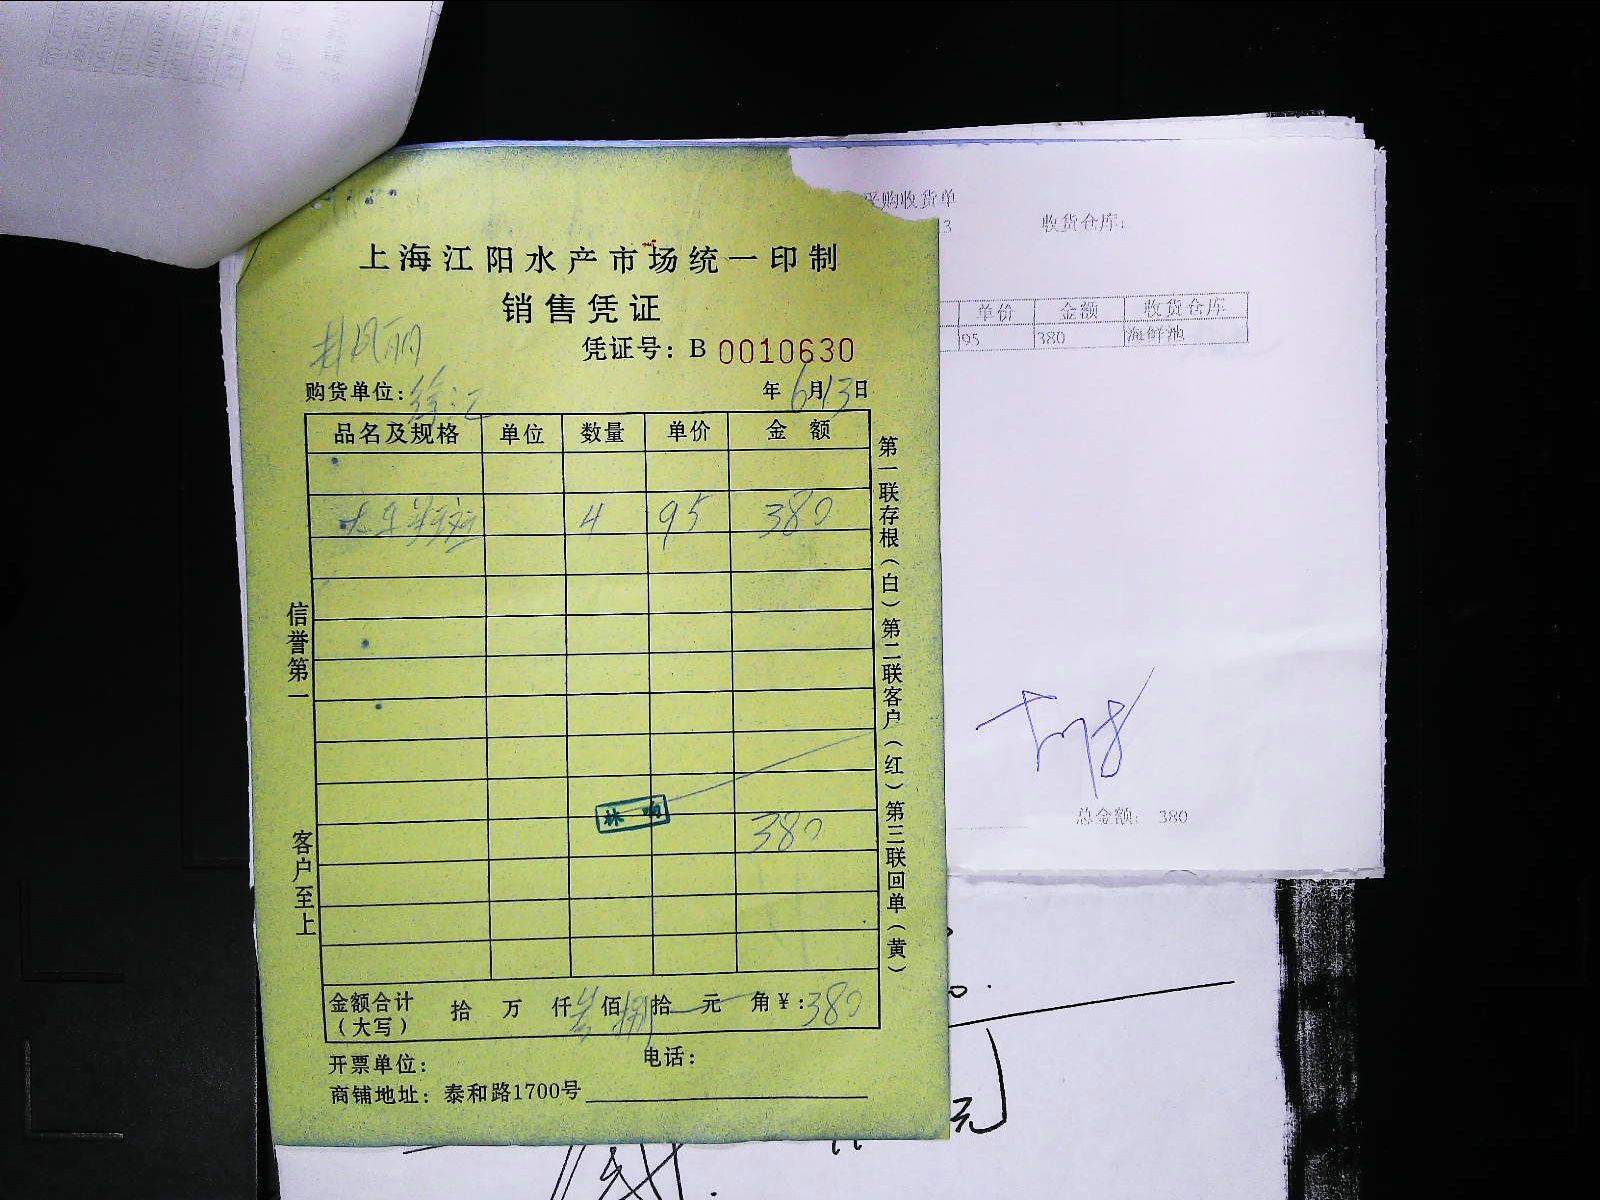 采购收货单
3 收货仓库:
单价 金额 收货仓库
95 380 海鲜池
总金额: 380
上海江阳水产市场统一印制
销售凭证
凭证号: B 0010630
购货单位: 徐汇
年6月13日
品名及规格 单位 数量 单价 金额
4 95 380
林
380
金额合计(大写) 拾 万 仟 叁佰 捌拾 元 角 ¥: 380
开票单位: 电话:
商铺地址: 泰和路1700号
信誉第一
客户至上
第一联存根(白)第二联客户(红)第三联回单(黄)
元